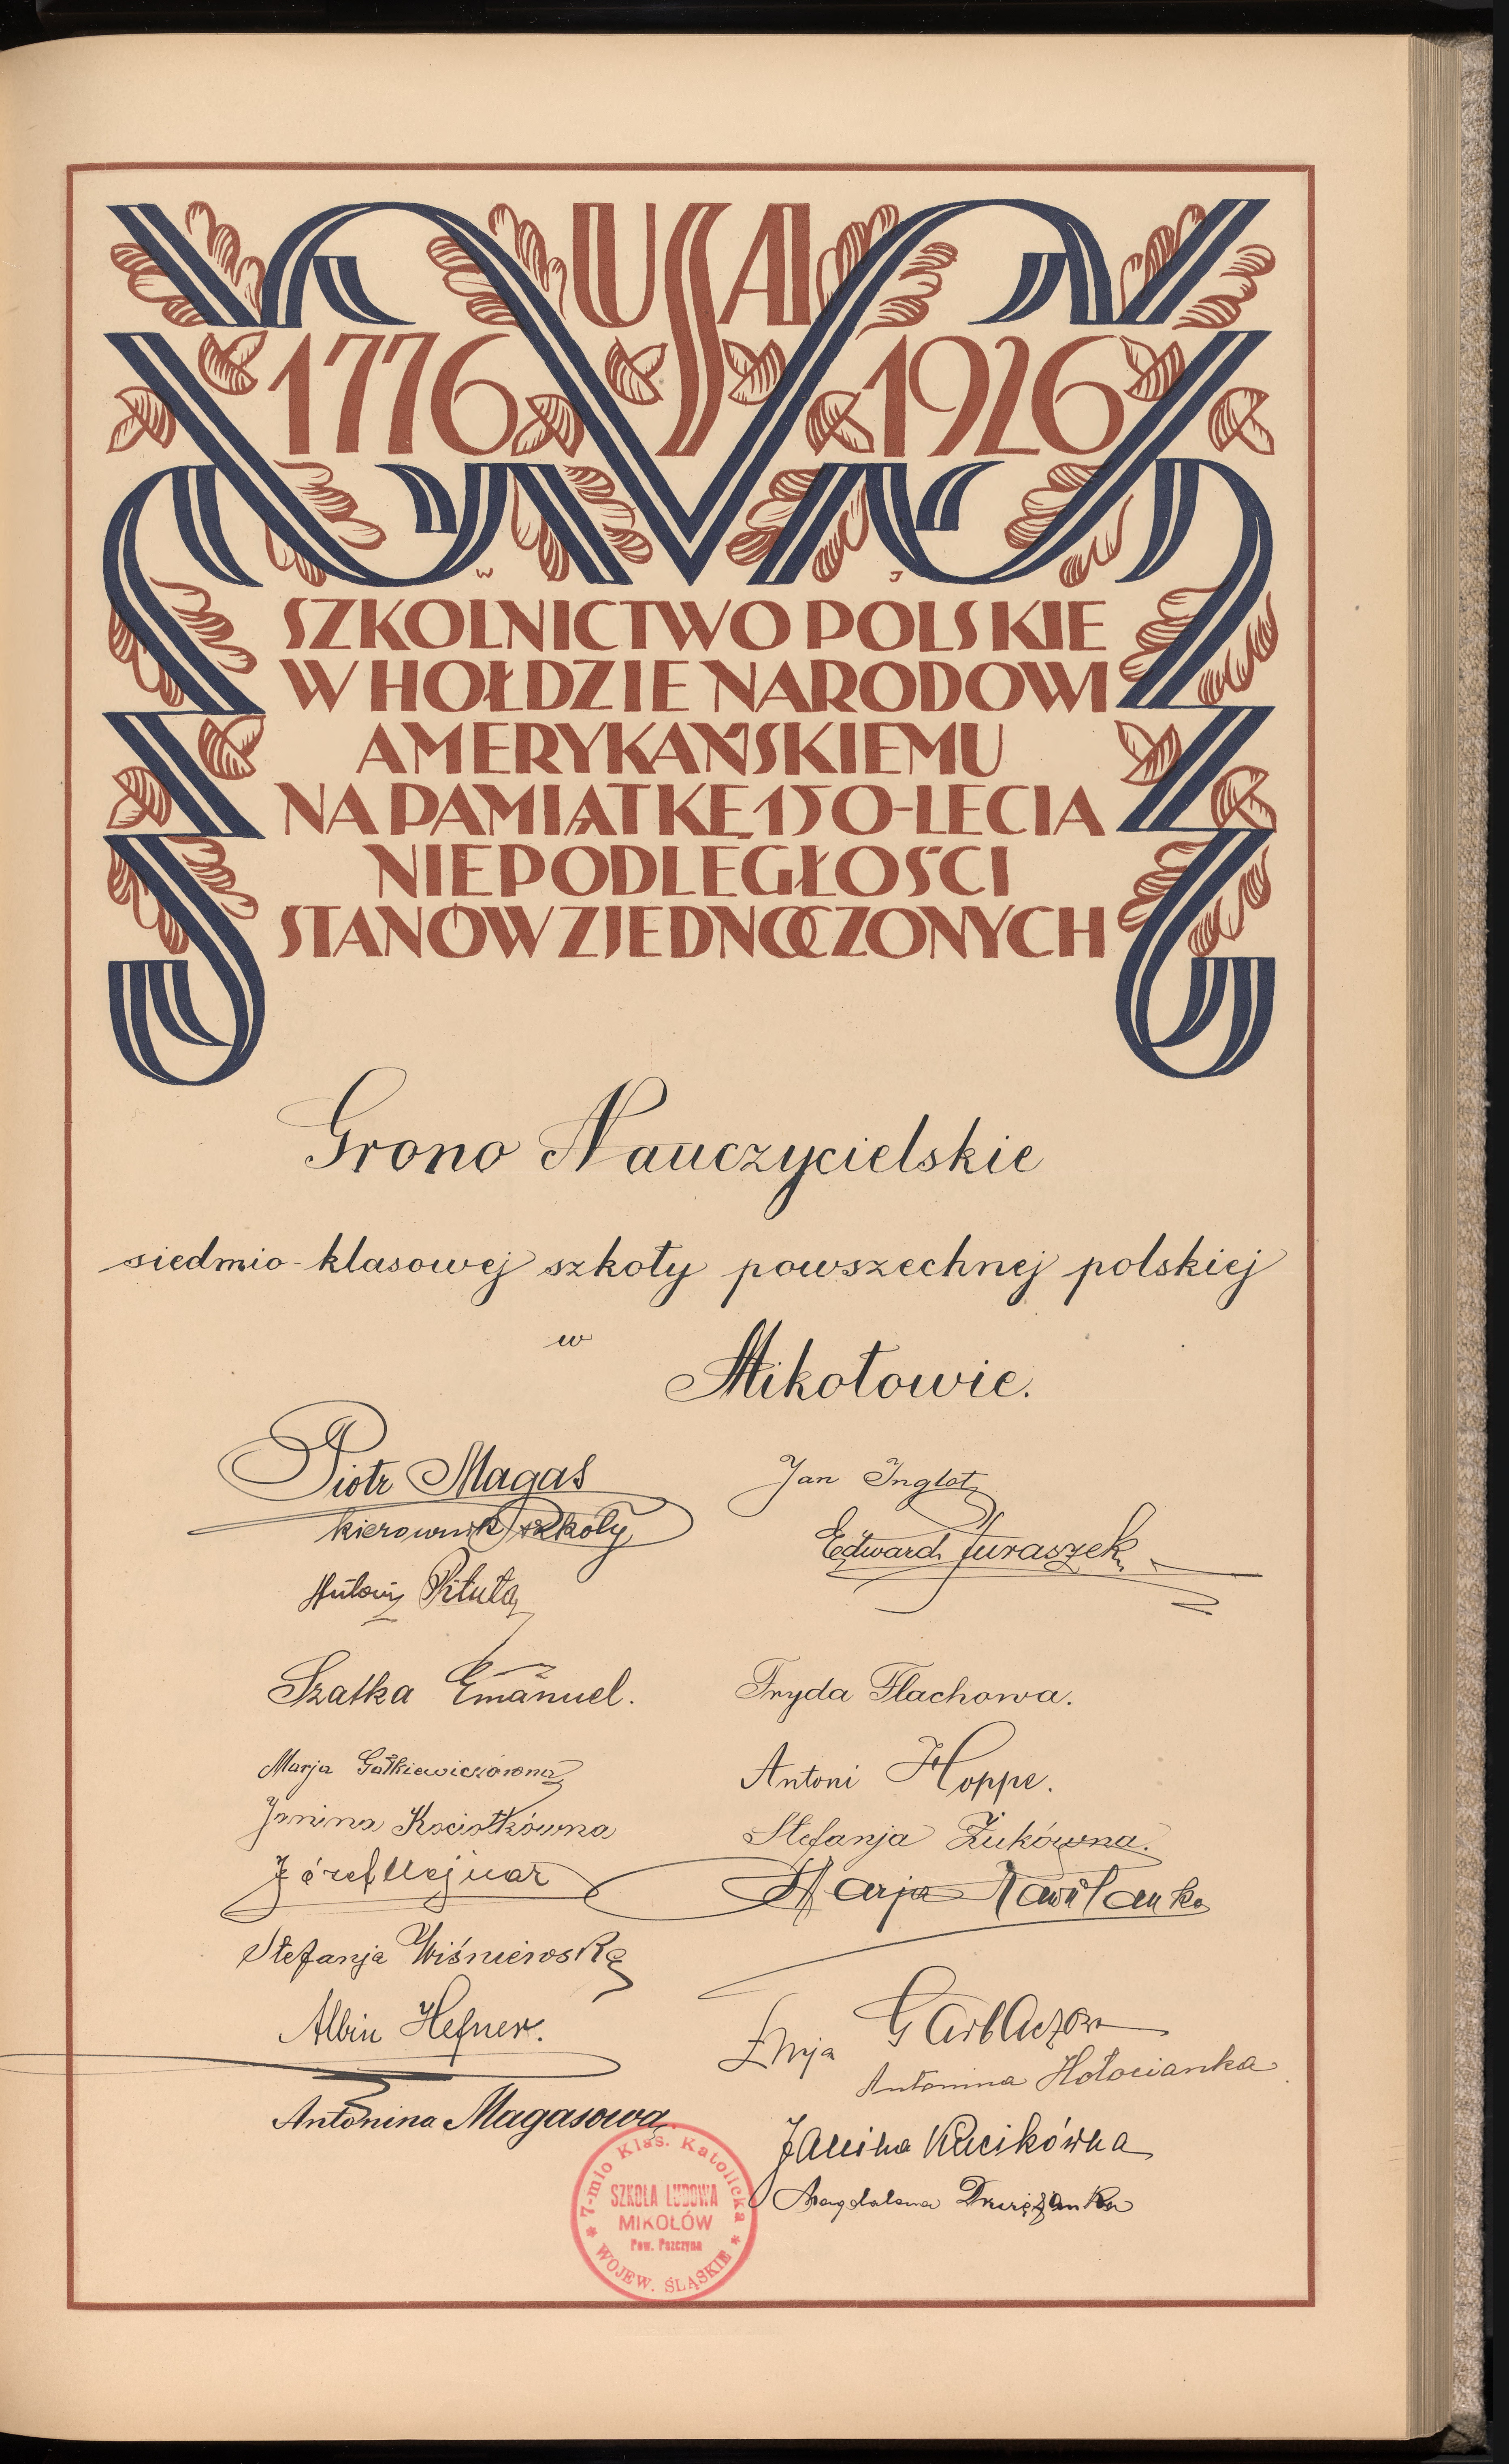 USA
1776 1926
W J
SZKOLNICTWO POLSKIE
W HOŁDZIE NARODOWI
AMERYKAŃSKIEMU
NA PAMIĄTKĘ 150-LECIA
NIEPODLEGŁOŚCI
STANÓW ZJEDNOCZONYCH
Grono Nauczycielskie
siedmio-klasowej szkoły powszechnej polskiej
w
Mikołowie.
Piotr Magas
kierownik szkoły
Pituła
Szatka Emanuel.
Marja Gałkiewiczówna
Janina Kociołkówna
Józef Wejnar
Stefanja Wiśniewska
Albin Hefner.
Antonina Magasowa
Jan Inglot
Edward Juraszek
Fryda Flachowa.
Antoni Hoppe.
Stefanja Żukówna.
Marja
Garbaczowa
Antonina Hołocianka
Janina Kucikówna
Magdalena
* 7-mio Klas. Katolicka *
SZKOŁA LUDOWA
MIKOŁÓW
Pow. Pszczyna
WOJEW. ŚLĄSKIE